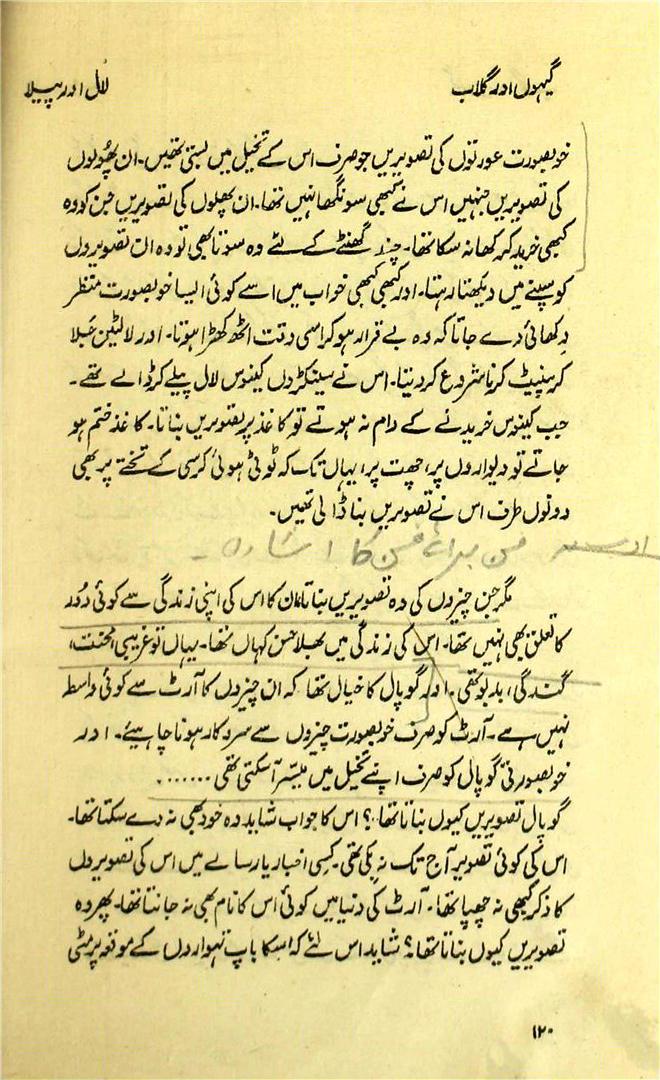 گیہوں اور گلاب
لال اور پیلا
خوبصورت عورتوں کی تصویریں جو صرف اس کے تخیل میں بستی تھیں۔ ان پھولوں
کی تصویریں جنہیں اس نے کبھی سونگھا نہیں تھا۔ ان پھلوں کی تصویریں جن کو وہ
کبھی خرید کر کھا نہ سکا تھا۔ چند گھنٹے کے لئے وہ سوتا بھی تو وہ ان تصویروں
کو سپنے میں دیکھتا رہتا۔ اور کبھی کبھی خواب میں اسے کوئی ایسا خوبصورت منظر
دکھائی دے جاتا کہ وہ بے قرار ہو کر اسی وقت اٹھ کھڑا ہوتا۔ اور لالٹین جلا
کر پینٹ کرنا شروع کر دیتا۔ اس نے سینکڑوں کینوس لال پیلے کر ڈالے تھے۔
جب کینوس خریدنے کے دام نہ ہوتے تو کاغذ پر تصویریں بناتا۔ کاغذ ختم ہو
جاتے تو دیواروں پر، چھت پر، یہاں تک کہ ٹوٹی ہوئی کرسی کے تختے پر بھی
دونوں طرف اس نے تصویریں بنا ڈالی تھیں۔
فن برائے فن کا اشارہ -
مگر جن چیزوں کی وہ تصویریں بناتا ان کا اس کی اپنی زندگی سے کوئی دور
کا تعلق بھی نہیں تھا۔ اس کی زندگی میں بھلا حسن کہاں تھا۔ یہاں تو غریبی، محنت،
گندگی، بدبو تھی۔ اور گوپال کا خیال تھا کہ ان چیزوں کا آرٹ سے کوئی واسطہ
نہیں ہے۔ آرٹ کو صرف خوبصورت چیزوں سے سروکار ہونا چاہیئے۔ اور
خوبصورتی گوپال کو صرف اپنے تخیل میں میسّر آ سکتی تھی .......
گوپال تصویریں کیوں بناتا تھا؟ اس کا جواب شاید وہ خود بھی نہ دے سکتا تھا۔
اس کی کوئی تصویر آج تک نہ بکی تھی۔ کسی اخبار یا رسالے میں اس کی تصویروں
کا ذکر کبھی نہ چھپا تھا۔ آرٹ کی دنیا میں کوئی اس کا نام بھی نہ جانتا تھا۔ پھر وہ
تصویریں کیوں بناتا تھا؟ شاید اس لئے کہ اس کا باپ تہواروں کے موقعہ پر مٹی
۱۲۰